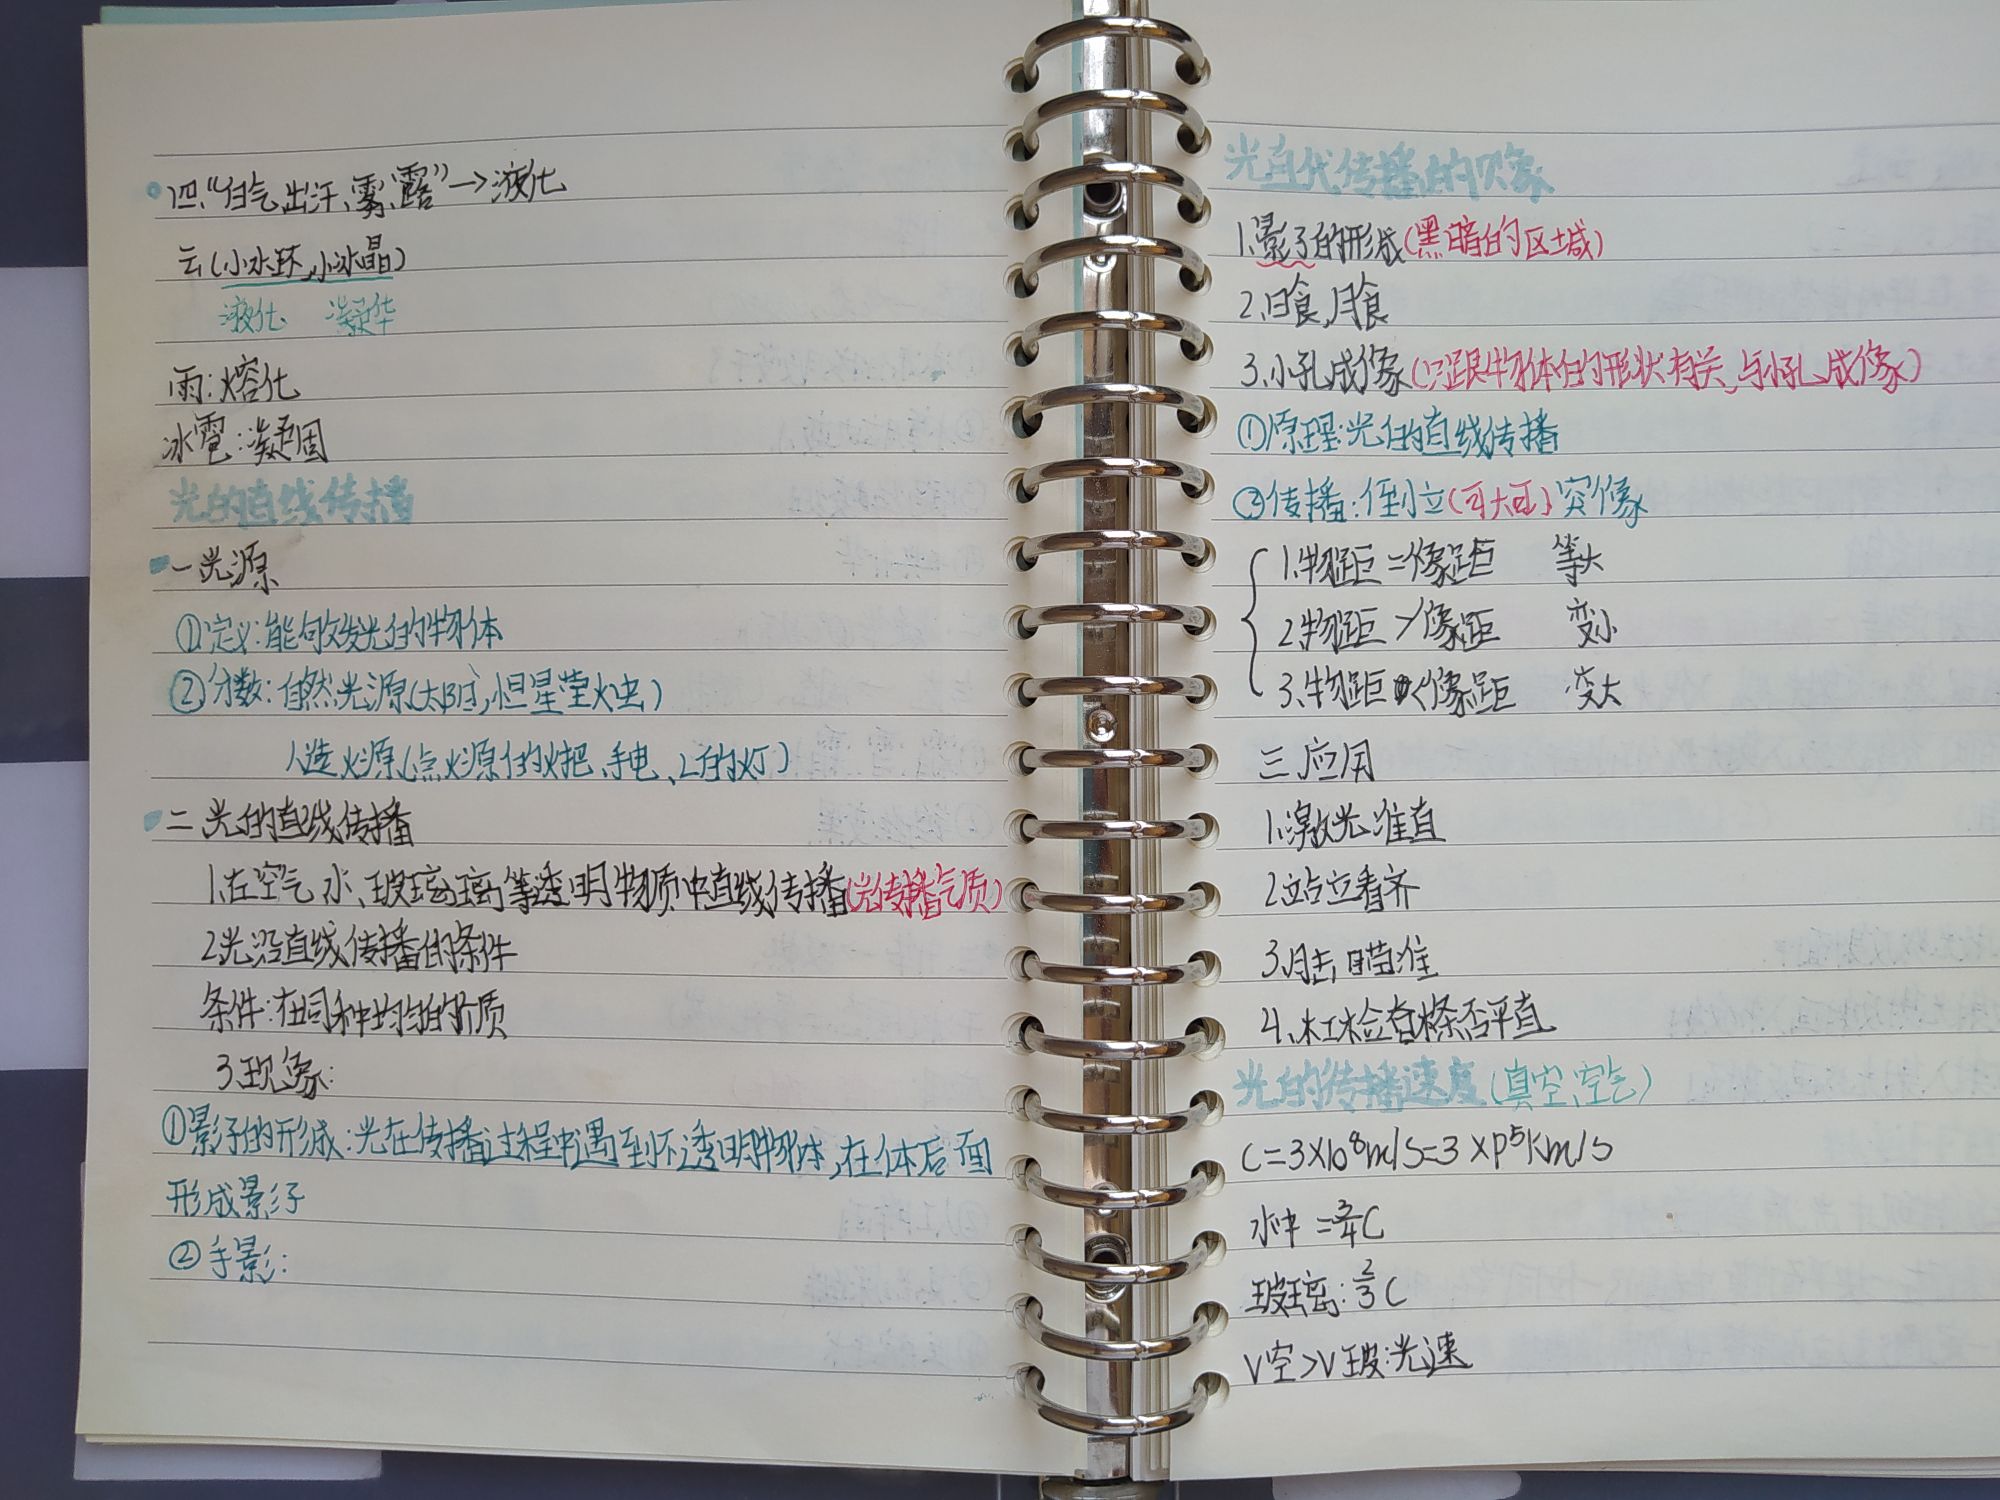 四、“白气、出汗、雾、露”→液化
云(小水环,小冰晶)
液化 凝华
雨:熔化
冰雹:凝固
光的直线传播
一光源
①定义:能够发光的物体
②分数:自然光源(太阳,恒星萤火虫)
人造火源(点火源的火把、手电、上的灯)
二光的直线传播
1.在空气水、玻璃璃等透明物质中直线传播(光传播气质)
2光沿直线传播的条件
条件:在同种均匀的介质
3现象:
①影子的形成:光在传播过程中遇到不透明物体,在体后面
形成影子
②手影:
光直代传播的现象
1.影子的形成(黑暗的区域)
2.日食,月食
3.小孔成像(只跟物体的形状有关,与小孔成像)
①原理:光的直线传播
②传播:倒立(可大可)实像
1.物距=像距 等大
2物距>像距 变小
3.物距<像距 变大
三.应用
1.激光准直
2站立看齐
3.射击瞄准
4.木工检查木条否平直
光的传播速度(真空、空气)
C=3×10⁸m/s=3×P⁵km/s
水中=3/4C
玻璃:2/3C
V空>V玻:光速